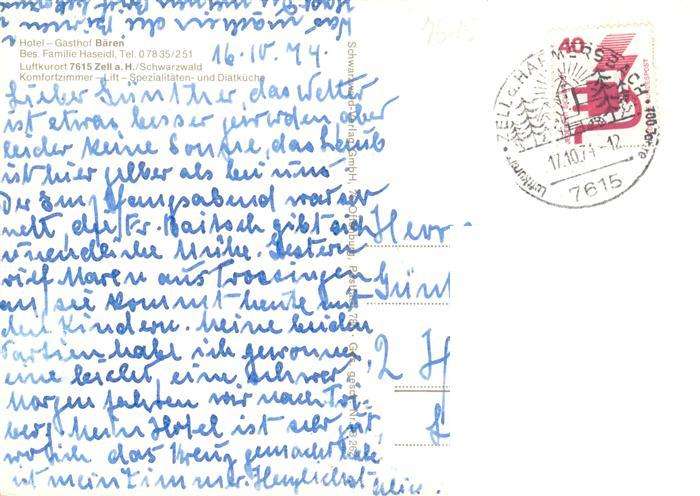 Hotel – Gasthof Bären
Bes. Familie Haseidl, Tel. 0 78 35/2 51
Luftkurort 7615 Zell a. H./Schwarzwald
Komfortzimmer – Lift – Spezialitäten- und Diatküche
16.10.74.
Lieber Günther, das Wetter
ist etwas besser geworden aber
leider keine Sonne, das Laub
ist hier gelber als bei uns
Der Empfangsabend war sehr
nett, die Fr. Baitsch gibt sich
unendliche Mühe. Gestern
rief Maren aus Trossingen
an, sie kommt heute mit
den Kindern. Meine beiden
Partien habe ich gewonnen,
eine leicht, eine schwer
Morgen fahren wir nach Tri-
berg. Mein Hotel ist sehr gut,
wo ich das Kreuz gemacht habe
ist mein Zimmer. Herzlichst
Herr
Günt
2 H
40
ZELL a. HARMERSBACH
Luftkurort
700 Jahre
17.10.74 - 12
7615